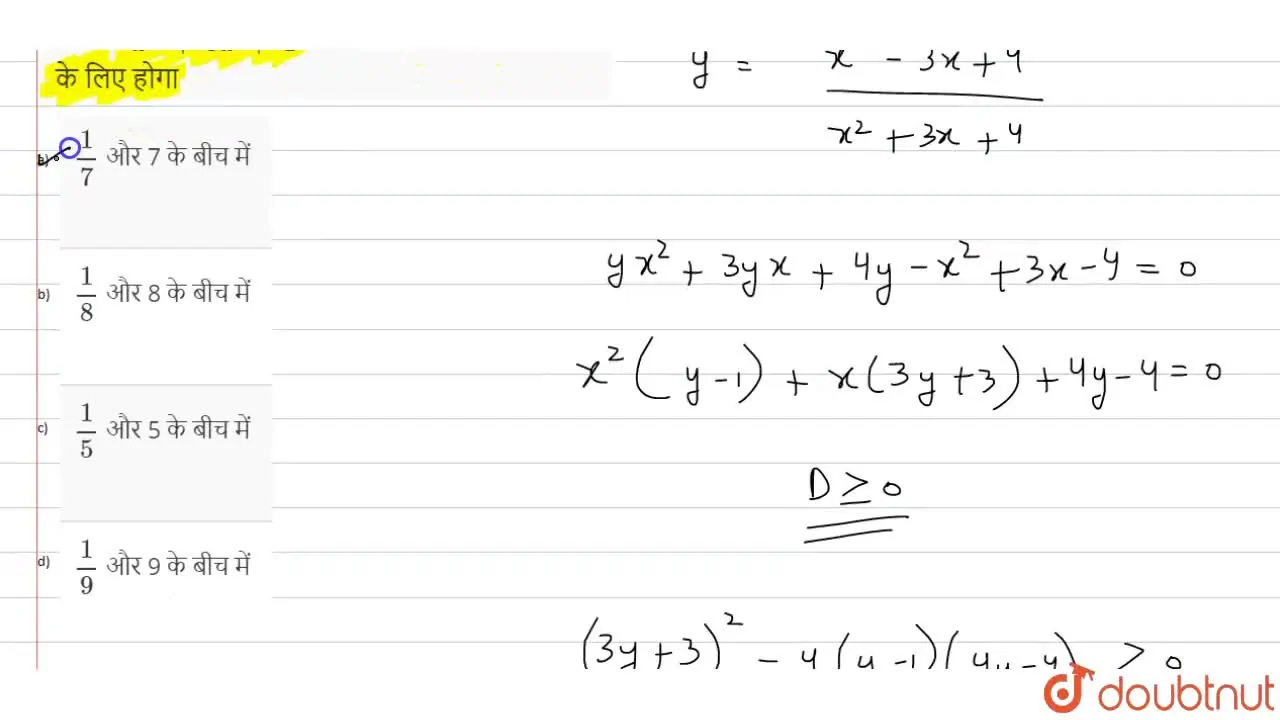 के लिए होगा
a) 1/7 और 7 के बीच में
b) 1/8 और 8 के बीच में
c) 1/5 और 5 के बीच में
d) 1/9 और 9 के बीच में
y = x - 3x + 4
x² + 3x + 4
yx² + 3yx + 4y - x² + 3x - 4 = 0
x² (y - 1) + x (3y + 3) + 4y - 4 = 0
D ≥ 0
(3y + 3)² - 4 (y - 1) (4y - 4) ≥ 0
doubtnut